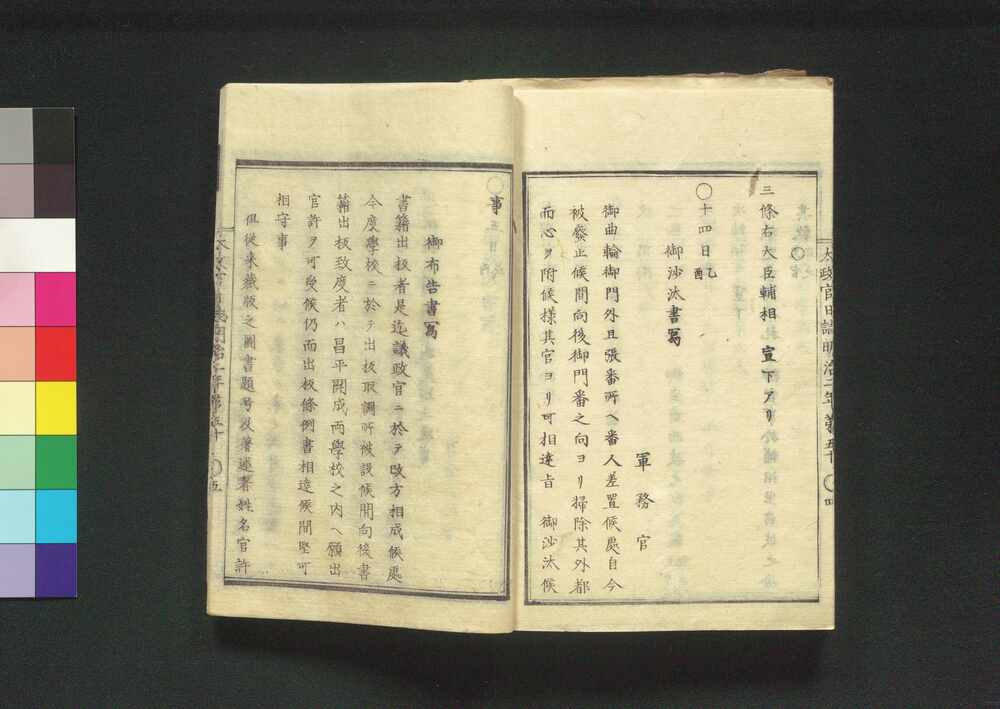 太政官日誌明治二年第五十 〇四
三條右大臣輔相宣下アリ
〇十四日乙酉
御沙汰書寫
軍務官
御曲輪御門外且張番所ヘ番人差置候處自今
被廢止候間向後御門番之向ヨリ掃除其外都
而心ヲ附候樣其官ヨリ可相達旨 御沙汰候
事
〇
御布告書寫
書籍出板者是迄議政官ニ於テ改方相成候處
今度學校ニ於テ出板取調所被設候間向後書
籍出板致度者ハ昌平開成両學校之内ヘ願出
官許ヲ可受候仍而出板條例書相達候間堅可
相守事
但從来藏版之圖書題号及著述者姓名官許
太政官日誌明治二年第五十 〇五